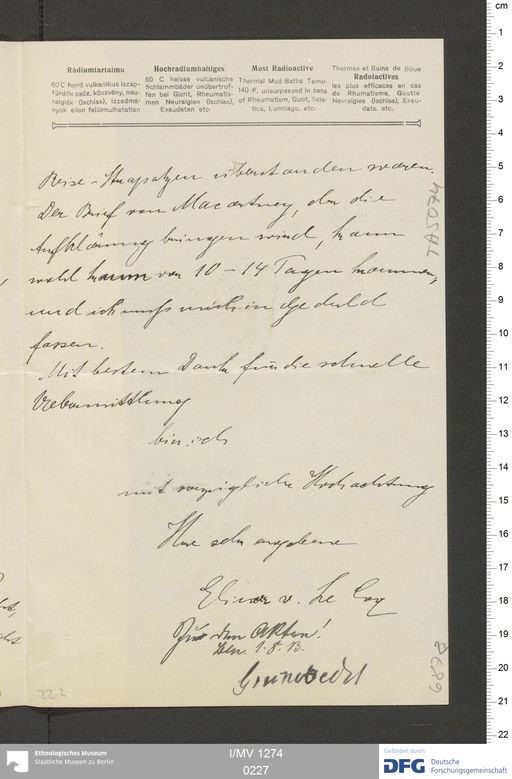 Rádiumtartalmu
60 C forró vulkanikus iszap-
fürdők csúz, köszvény, neu-
ralgiák (ischias), izzadmá-
nyok ellen felülmulhatatlan
Hochradiumhaltiges
60 C heisse vulcanische
Schlammbäder unübertrof-
fen bei Gicht, Rheumatis-
men Neuralgien (Ischias),
Exaudaten etc
Most Radioactive
Thermal Mud Baths Temp-
140 F, unsurpassed in case
of Rheumatism, Guot, Scia-
tica, Lumbago, etc.
Thermes et Bains de Boue
Radoiactives
les plus efficaces en cas
de Rhumatisme, Goutte
Nevralgies (Ischias), Exsu-
dats. etc.
Reise-Strapatzen überstanden waren.
Der Brief von Macartney, der die
Aufklärung bringen wird, kann
wohl kaum vor 10-14 Tagen kommen,
und ich muss mich in Geduld
fassen.
Mit bestem Dank für die schnelle
Uebermittlung
bin ich
mit vorzüglicher Hochachtung
Ihre sehr ergebene
v. Le Coq
Zu den Akten!
Bln. 1.8.13.
Grünwedel
TA5074
6878
222
cm
1
2
3
4
5
6
7
8
9
10
11
12
13
14
15
16
17
18
19
20
21
22
Ethnologisches Museum
Staatliche Museen zu Berlin
I/MV 1274
0227
Gefördert durch
DFG Deutsche
Forschungsgemeinschaft